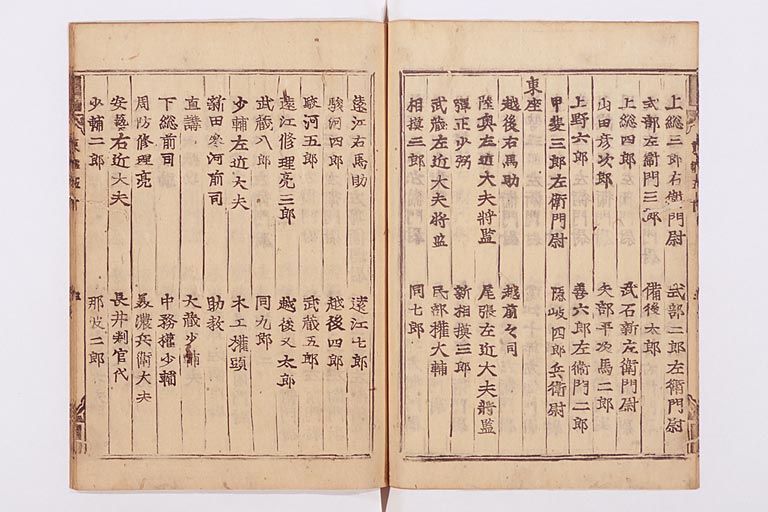 上総三郎右衛門尉　式部二郎左衛門尉
式部左衛門三郎　備後太郎
上総四郎　武石新左衛門尉
山田彦次郎　矢部平次馬二郎
上野六郎　善六郎左衛門二郎
甲斐三郎左衛門尉　隠岐四郎兵衛尉
東座
越後右馬助　越前々司
陸奥左近大夫将監　尾張左近大夫将監
弾正少弼　新相摸三郎
武蔵左近大夫将監　民部権大輔
相摸三郎　同七郎
遠江右馬助　遠江七郎
駿河四郎　越後四郎
駿河五郎　武蔵五郎
遠江修理亮三郎　越後又太郎
武蔵八郎　同九郎
少輔左近大夫　木工権頭
新田参河前司　助教
直講　大蔵少輔
下総前司　中務権少輔
周防修理亮　美濃兵衛大夫
安藝右近大夫　長井判官代
少輔二郎　那波二郎